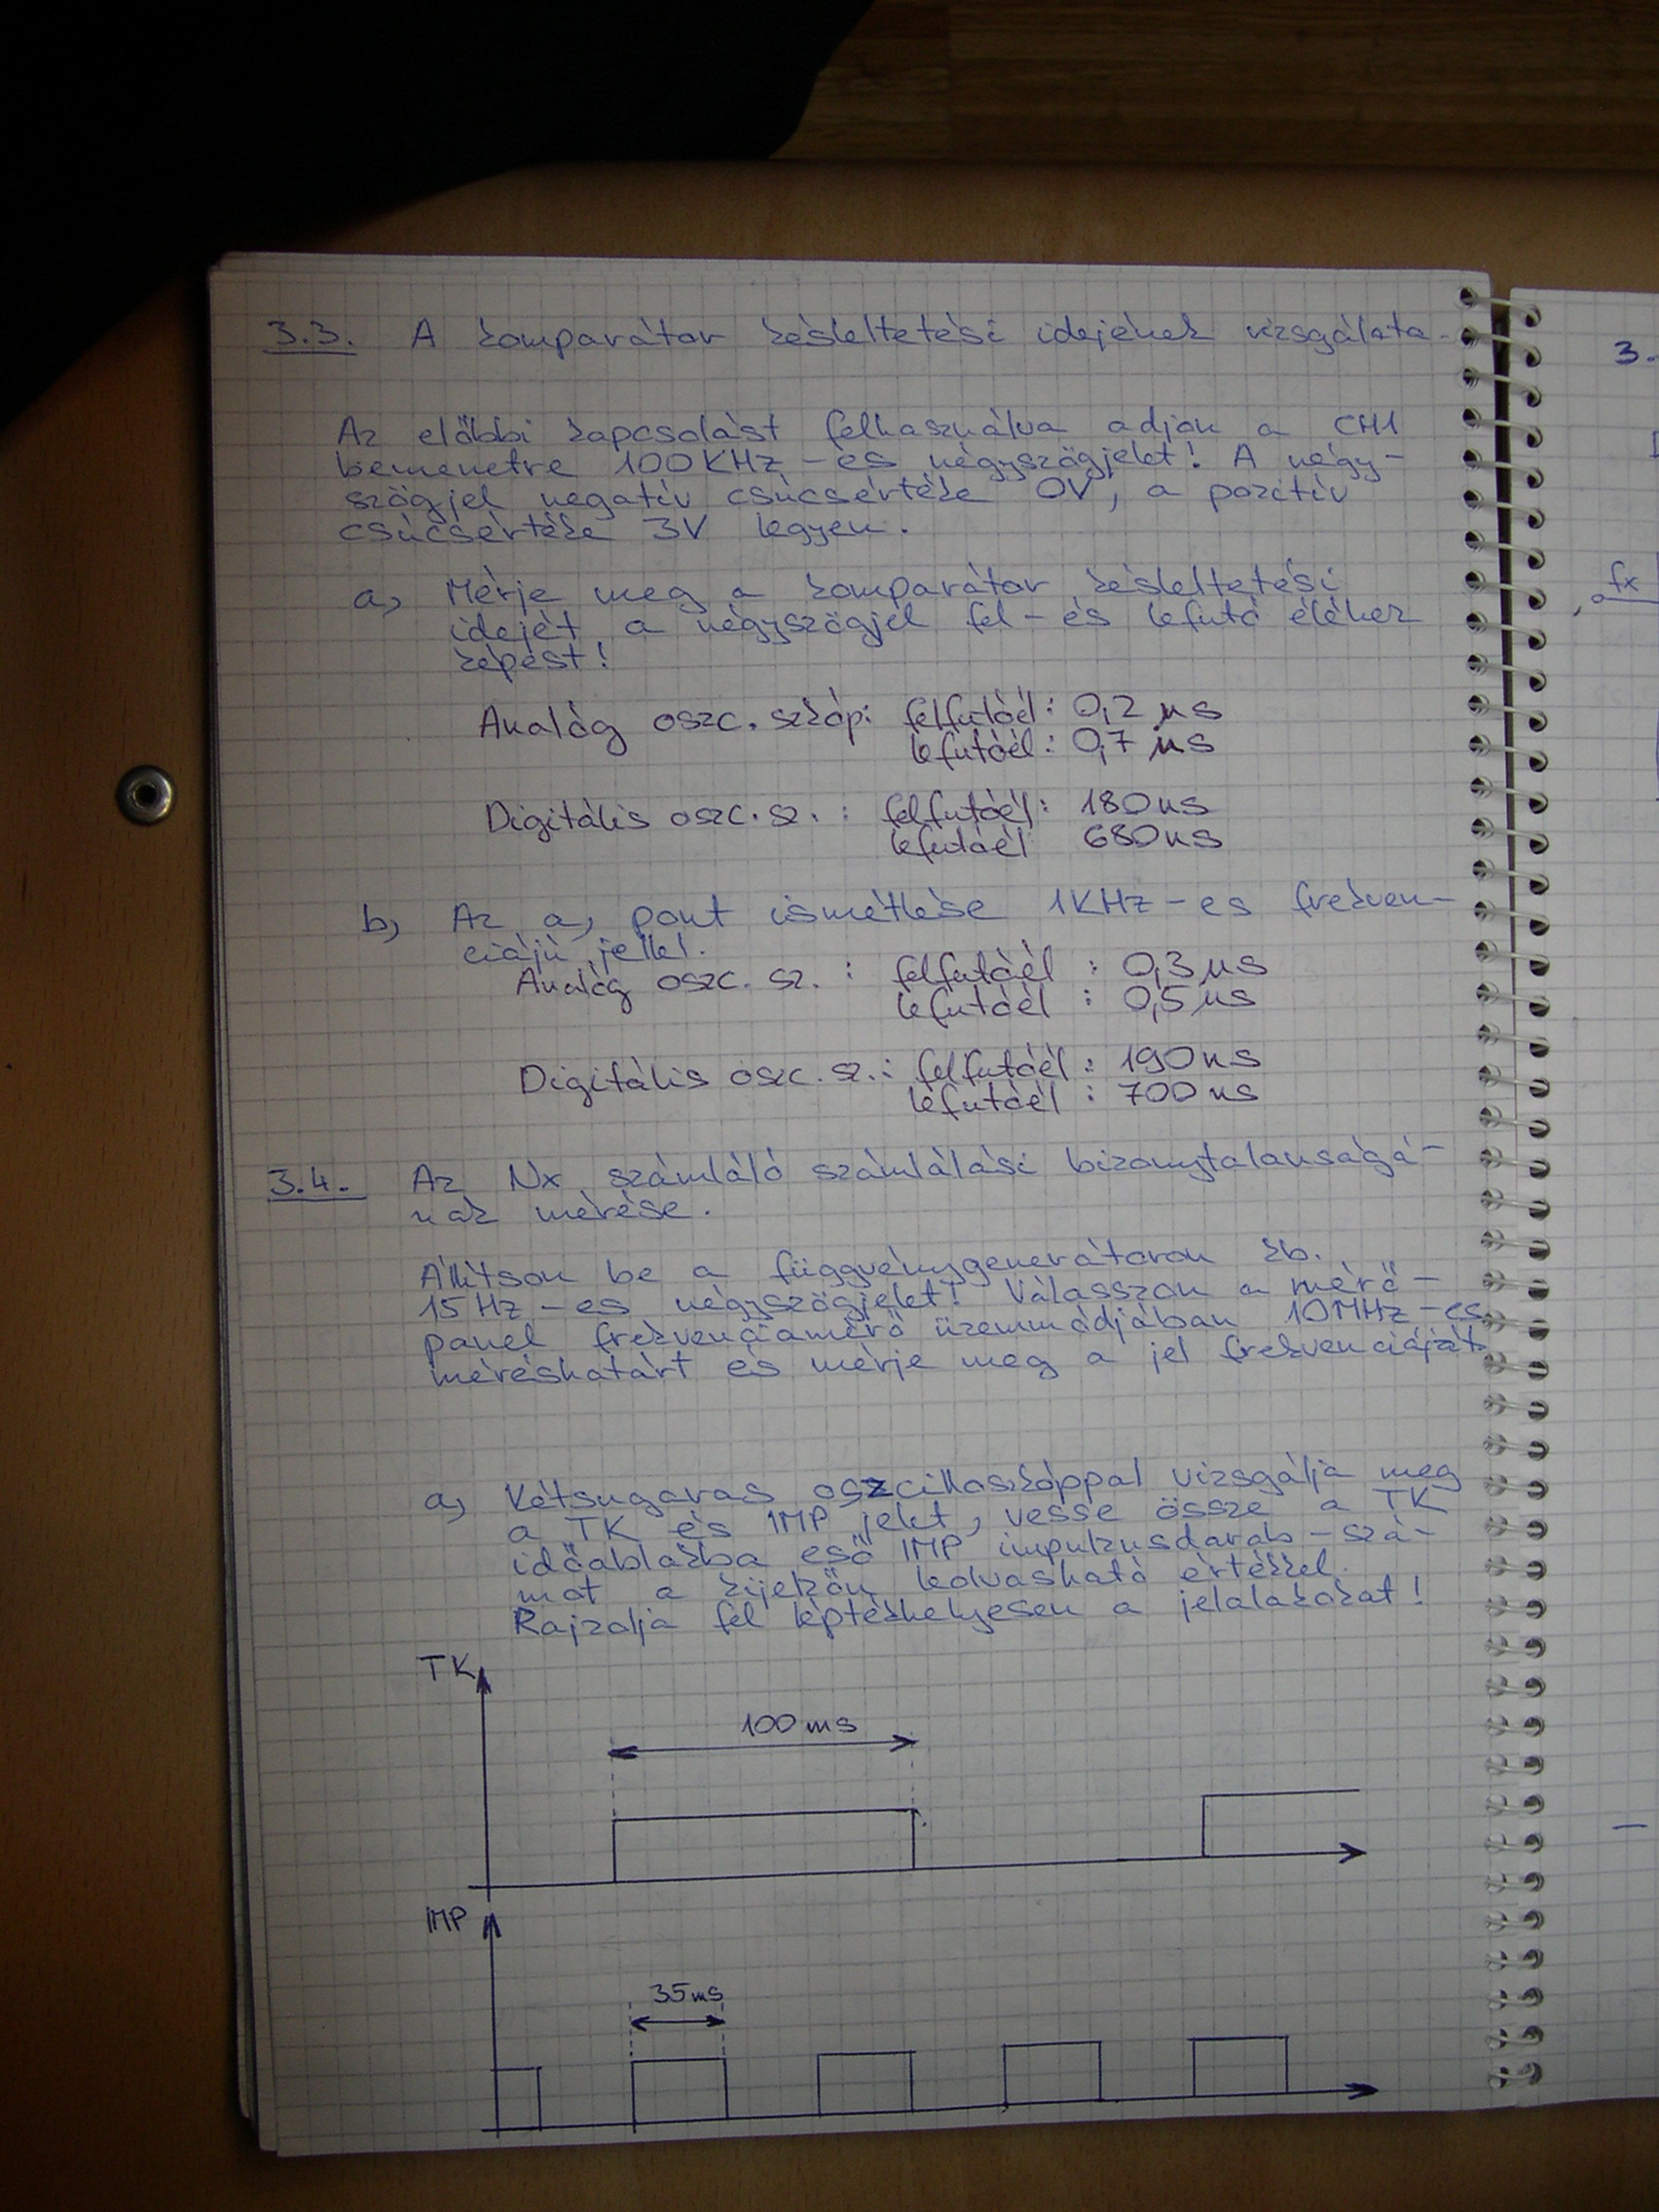 3.3. A komparátor késleltetési idejének vizsgálata.
Az előbbi kapcsolást felhasználva adjon a CH1
bemenetre 100KHz-és négyszögjelet! A négy-
szögjel negatív csúcsértéke 0V, a pozitív
csúcsértéke 3V legyen.
a, Mérje meg a komparátor késleltetési
idejét, a négyszögjel fel- és lefutó éléhez
képest!
Analóg oszc. szkóp: felfutóél: 0,2 µs
lefutóél: 0,7 µs
Digitális oszc. sz. : felfutóél: 180ns
lefutóél 680ns
b, Az a, pont ismétlése 1KHz-es frekven-
ciájú jellel.
Analóg oszc. sz. : felfutóél : 0,3 µs
lefutóél : 0,5 µs
Digitális oszc. sz.: felfutóél : 190ns
lefutóél : 700ns
3.4. Az Nx számláló számlálási bizonytalanságá-
nak mérése.
Állítson be a függvénygenerátoron kb.
15Hz-es négyszögjelet! Válasszon a mérő-
panel frekvenciamérő üzemmódjában 10MHz-es
méréshatárt és mérje meg a jel frekvenciáját.
a, Kétsugaras oszcilloszkóppal vizsgálja meg
a TK és IMP jelet, vesse össze a TK
időablakba eső IMP impulzusdarab-szá-
mot a kijelzőn leolvasható értékkel.
Rajzolja fel léptékhelyesen a jelalakokat!
TK
100ms
IMP
35ms
3.
fx